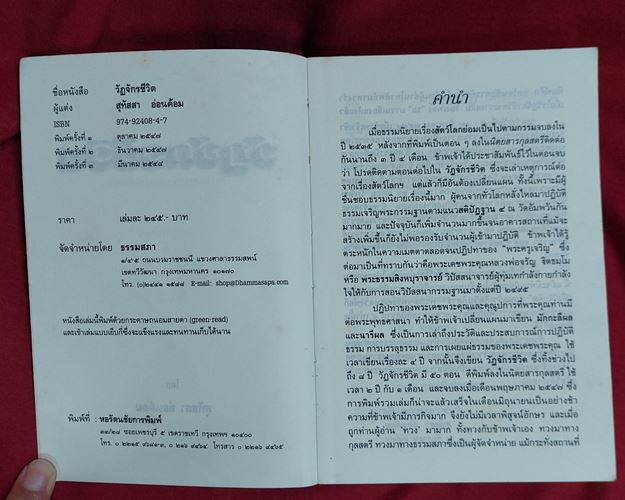 ชื่อหนังสือ วัฏจักรชีวิต
ผู้แต่ง สุทัสสา อ่อนค้อม
ISBN 974-92408-4-7
พิมพ์ครั้งที่ ๑ ตุลาคม ๒๕๔๗
พิมพ์ครั้งที่ ๒ ธันวาคม ๒๕๔๗
พิมพ์ครั้งที่ ๓ มีนาคม ๒๕๔๘
ราคา เล่มละ ๒๔๕.- บาท
จัดจำหน่ายโดย ธรรมสภา
๑/๔-๕ ถนนบรมราชชนนี แขวงศาลาธรรมสพน์
เขตทวีวัฒนา กรุงเทพมหานคร ๑๐๑๗๐
โทร. (๐)๒๔๔๑ ๑๕๘๘ E-mail: shop@Dhammasapa.com
หนังสือเล่มนี้พิมพ์ด้วยกระดาษถนอมสายตา (green-read)
และเข้าเล่มแบบเย็บกี่ซึ่งจะแข็งแรงและทนทานเก็บได้นาน
พิมพ์ที่ : หอรัตนชัยการพิมพ์
๓๓/๒๘ ซอยเพชรบุรี ๕ เขตราชเทวี กรุงเทพฯ ๑๐๔๐๐
คำนำ
เมื่อธรรมนิยายเรื่องสัตว์โลกย่อมเป็นไปตามกรรมจบลงใน
ปี ๒๕๓๕ หลังจากที่พิมพ์เป็นตอน ๆ ลงในนิตยสารกุลสตรีติดต่อ
กันนานถึง ๓ ปี ๔ เดือน ข้าพเจ้าได้ประชาสัมพันธ์ไว้ในตอนจบ
ว่า โปรดติดตามตอนต่อไปใน วัฏจักรชีวิต ซึ่งจะเล่าเหตุการณ์ต่อ
จากเรื่องสัตว์โลกฯ แต่แล้วก็มีอันต้องเปลี่ยนแผน ทั้งนี้เพราะมีผู้
ชื่นชอบธรรมนิยายเรื่องนี้มาก ผู้คนจากทั่วโลกหลั่งไหลมาปฏิบัติ
ธรรมเจริญพระกรรมฐานตามแนวสติปัฏฐาน ๔ ณ วัดอัมพวันกัน
มากมาย และปัจจุบันก็เพิ่มจำนวนมากขึ้นจนอาคารสถานที่แม้จะ
สร้างเพิ่มขึ้นก็ยังไม่พอรองรับจำนวนผู้เข้ามาปฏิบัติ ข้าพเจ้าได้รู้
ตระหนักในความเมตตาตลอดจนปฏิปทาของ "พระครูเจริญ" ซึ่ง
ต่อมาเป็นที่ทราบกันว่าคือพระเดชพระคุณหลวงพ่อจรัญ ฐิตธมฺโม
หรือ พระธรรมสิงหบุราจารย์ วิปัสสนาจารย์ผู้ทุ่มเทกำลังกายกำลัง
ใจให้กับการสอนวิปัสสนากรรมฐานมาตั้งแต่ปี ๒๔๙๕
ปฏิปทาของพระเดชพระคุณและคุณูปการที่พระคุณท่านมี
ต่อพระพุทธศาสนา ทำให้ข้าพเจ้าเปลี่ยนแผนมาเขียน มักกะลีผล
และนารีผล ซึ่งเป็นการเล่าถึงประวัติและประสบการณ์การปฏิบัติ
ธรรม การบรรลุธรรม และการเผยแผ่ธรรมของพระเดชพระคุณ ใช้
เวลาเขียนเรื่องละ ๔ ปี จากนั้นจึงเขียน วัฏจักรชีวิต ซึ่งทิ้งช่วงไป
ถึง ๘ ปี วัฏจักรชีวิต มี ๕๐ ตอน ตีพิมพ์ลงในนิตยสารกุลสตรี ใช้
เวลา ๒ ปี กับ ๑ เดือน และจบลงเมื่อเดือนพฤษภาคม ๒๕๔๗ ซึ่ง
การพิมพ์รวมเล่มก็น่าจะแล้วเสร็จในเดือนมิถุนายนเป็นอย่างช้า
ความที่ข้าพเจ้ามีภารกิจมาก จึงยังไม่มีเวลาพิสูจน์อักษร และเมื่อ
ถูกท่านผู้อ่าน 'ทวง' มามาก ทั้งทวงกับข้าพเจ้าเอง ทวงมาทาง
กุลสตรี ทวงมาทางธรรมสภาซึ่งเป็นผู้จัดจำหน่าย แม้กระทั่งสถานที่